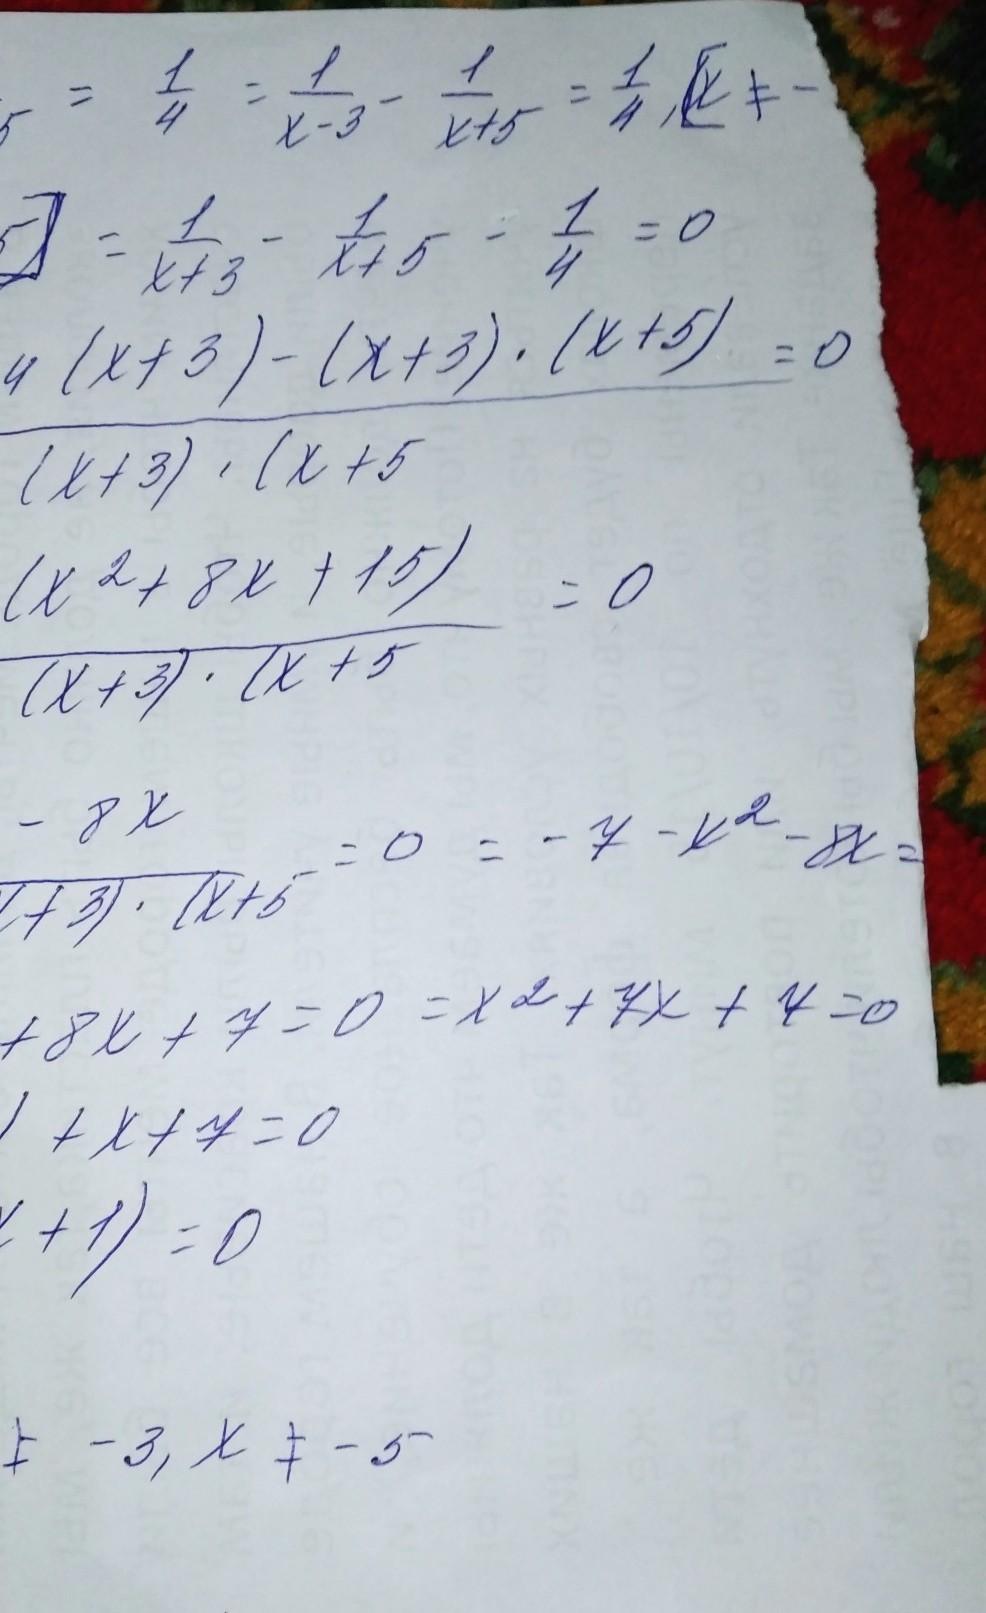 5 = 1/4 = 1/(x-3) - 1/(x+5) = 1/4, [x ≠ -
5] = 1/(x+3) - 1/(x+5) - 1/4 = 0
4 (x+3) - (x+3) · (x+5) = 0
(x+3) · (x+5
(x² + 8x + 15) = 0
(x+3) · (x+5
- 8x
x+3) · (x+5 = 0 = -7 - x² - 8x =
+ 8x + 7 = 0 = x² + 7x + 7 = 0
) + x + 7 = 0
x + 1) = 0
≠ -3, x ≠ -5